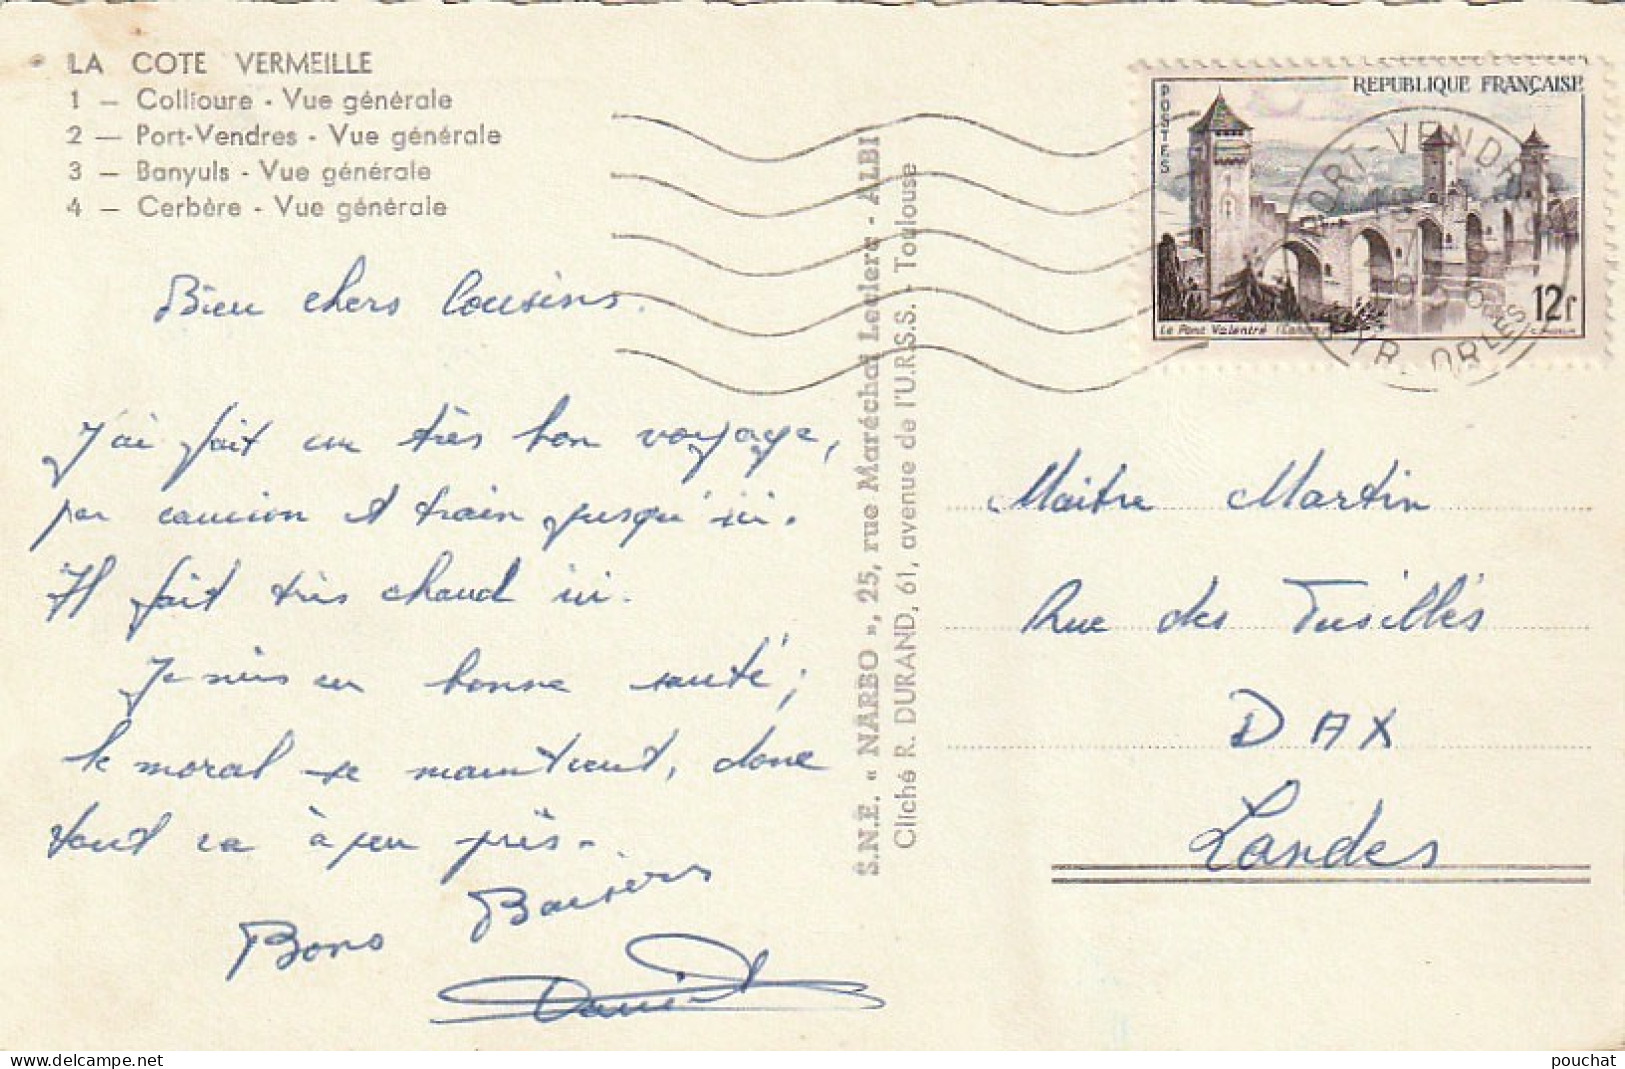 LA COTE VERMEILLE
1 — Collioure - Vue générale
2 — Port-Vendres - Vue générale
3 — Banyuls - Vue générale
4 — Cerbère - Vue générale
Bien chers Cousins.
J'ai fait un très bon voyage,
par camion et train jusqu'ici.
Il fait très chaud ici.
Je suis en bonne santé;
le moral se maintient, donc
tout va à peu près.
Bons Baisers
Daniel
S.N.E. « NARBO », 25, rue Maréchal Leclerc - ALBI
Cliché R. DURAND, 61, avenue de l'U.R.S.S. - Toulouse
REPUBLIQUE FRANÇAISE
POSTES
12f
Le Pont Valentré
PORT-VENDRES
PYR. ORLES
Maitre Martin
Rue des Fusillés
DAX
Landes
delcampe.net
pouchat